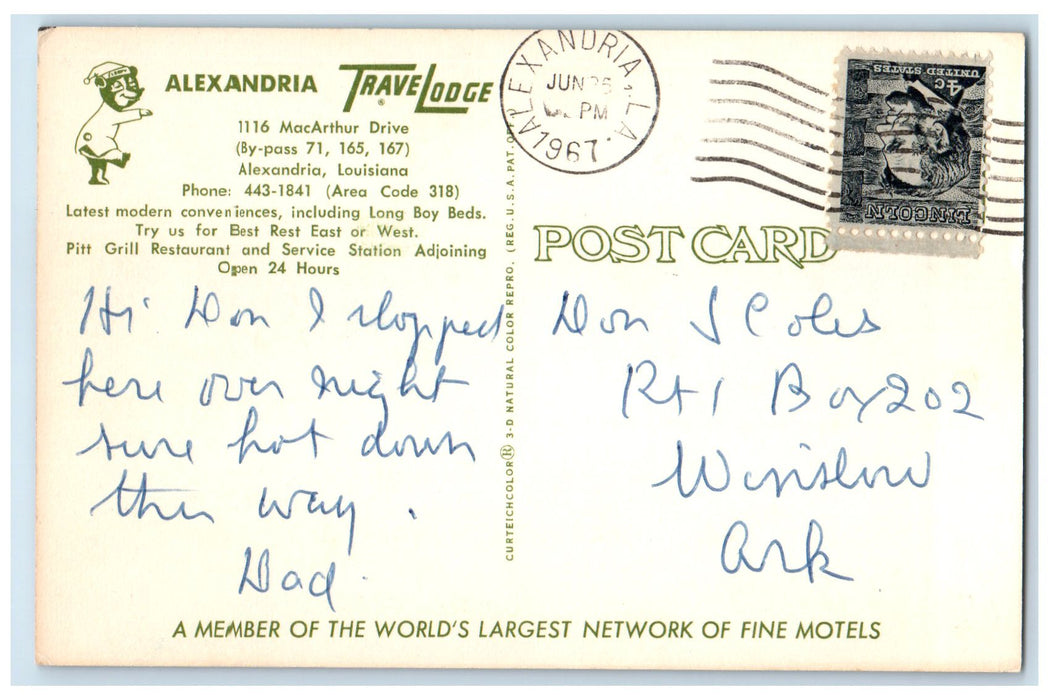 ALEXANDRIA TRAVELODGE®
1116 MacArthur Drive
(By-pass 71, 165, 167)
Alexandria, Louisiana
Phone: 443-1841 (Area Code 318)
Latest modern conveniences, including Long Boy Beds.
Try us for Best Rest East or West.
Pitt Grill Restaurant and Service Station Adjoining
Open 24 Hours
Hi Don I stopped
here over night
sure hot down
this way.
Dad.
CURTEICHCOLOR® 3-D NATURAL COLOR REPRO. (REG. U.S.A. PAT.
ALEXANDRIA, LA.
JUN
PM
1967
LINCOLN
4c
UNITED STATES
POST CARD
Don J Coles
Rt 1 Box 202
Winslow
Ark
A MEMBER OF THE WORLD'S LARGEST NETWORK OF FINE MOTELS